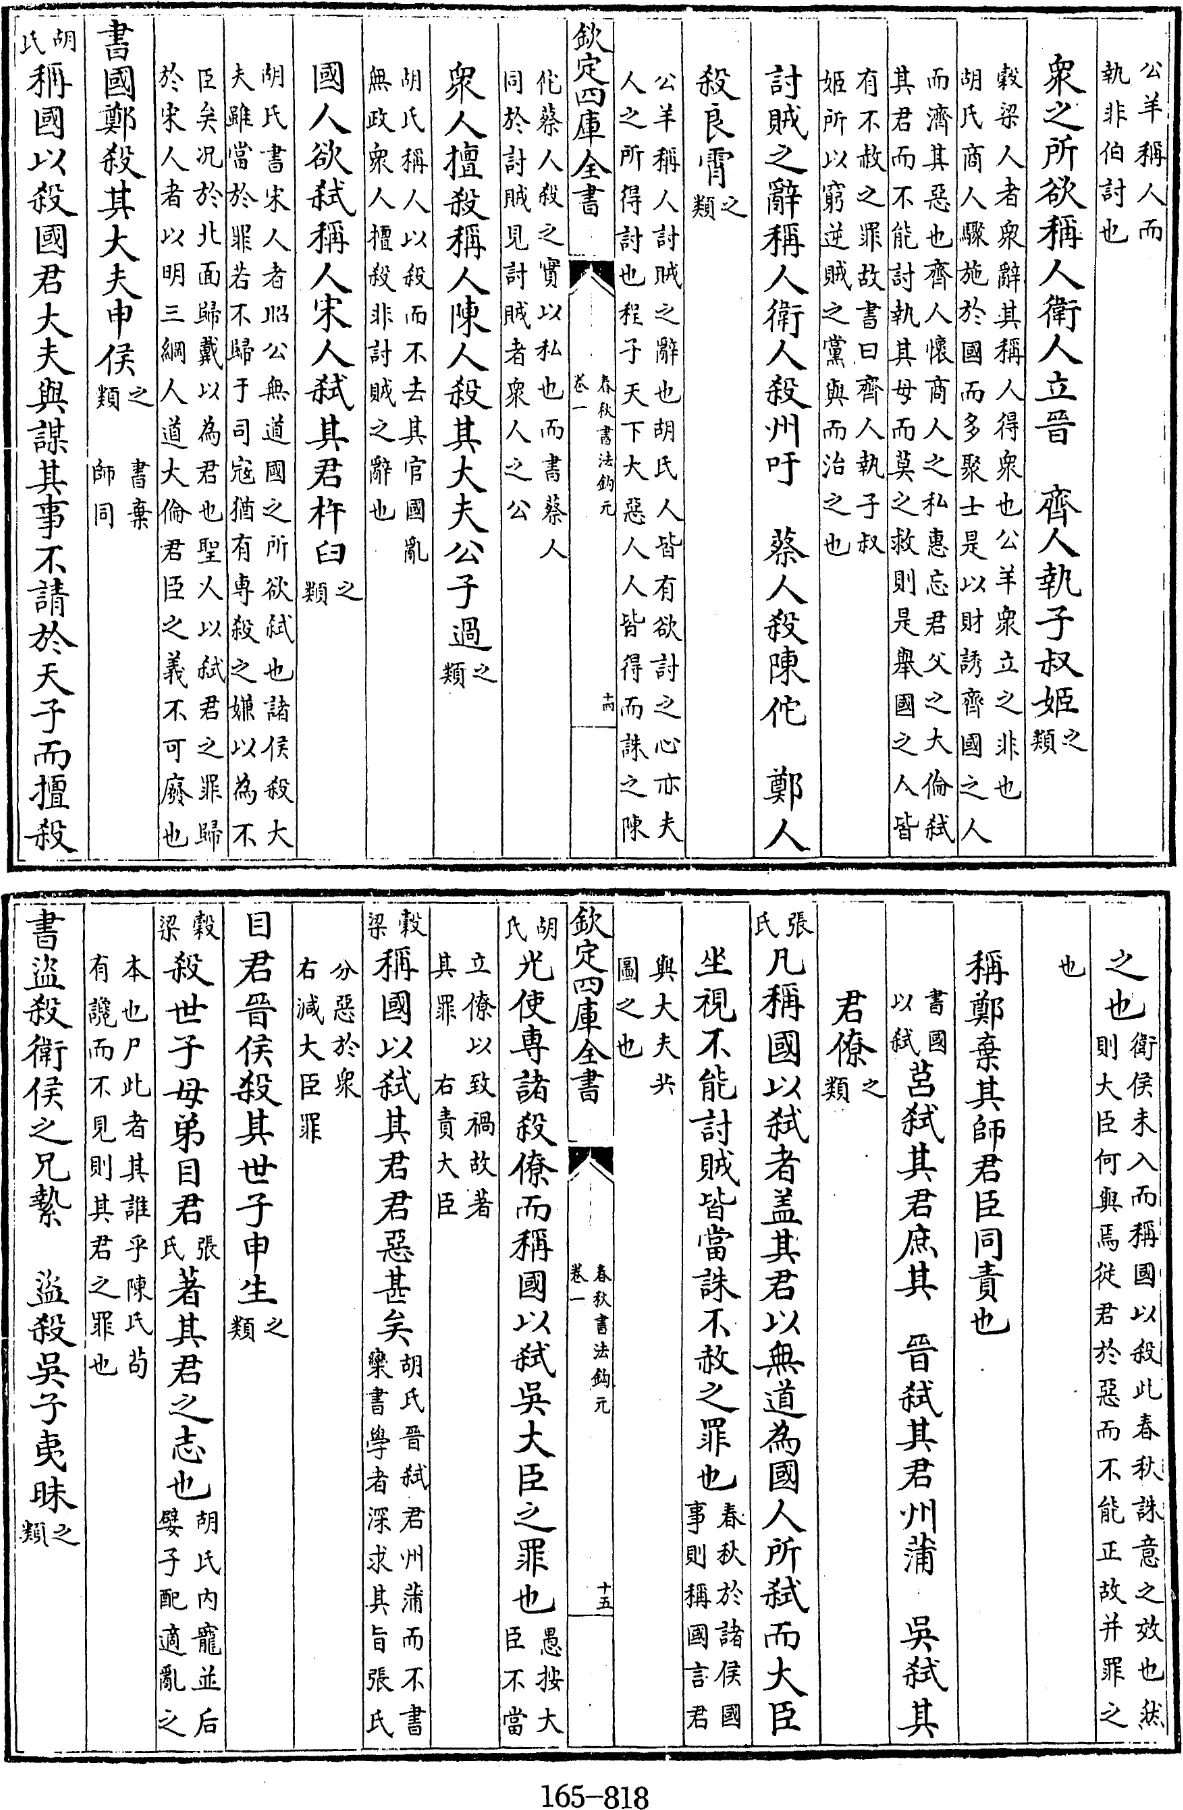 公羊稱人而
執非伯討也
衆之所欲稱人衛人立晉　齊人執子叔姬之類
穀梁人者衆辭其稱人得衆也公羊衆立之非也
胡氏商人驟施於國而多聚士是以財誘齊國之人
而濟其惡也齊人懷商人之私惠忘君父之大倫弑
其君而不能討執其母而莫之救則是舉國之人皆
有不赦之罪故書曰齊人執子叔
姬所以窮逆賊之黨與而治之也
討賊之辭稱人衛人殺州吁　蔡人殺陳佗　鄭人
殺良霄之類
公羊稱人討賊之辭也胡氏人皆有欲討之心亦夫
人之所得討也程子天下大惡人人皆得而誅之陳
欽定四庫全書
春秋書法鈎元
卷一
十四
佗蔡人殺之實以私也而書蔡人
同於討賊見討賊者衆人之公
衆人擅殺稱人陳人殺其大夫公子過之類
胡氏稱人以殺而不去其官國亂
無政衆人擅殺非討賊之辭也
國人欲弑稱人宋人弑其君杵臼之類
胡氏書宋人者昭公無道國之所欲弑也諸侯殺大
夫雖當於罪若不歸于司寇猶有專殺之嫌以為不
臣矣況於北面歸戴以為君也聖人以弑君之罪歸
於宋人者以明三綱人道大倫君臣之義不可廢也
書國鄭殺其大夫申侯之類　書棄師同
胡氏稱國以殺國君大夫與謀其事不請於天子而擅殺
之也衛侯未入而稱國以殺此春秋誅意之效也然
則大臣何與焉從君於惡而不能正故并罪之
也
稱鄭棄其師君臣同責也
書國以弑莒弑其君庶其　晉弑其君州蒲　吳弑其
君僚之類
張氏凡稱國以弑者盖其君以無道為國人所弑而大臣
坐視不能討賊皆當誅不赦之罪也春秋於諸侯國
事則稱國言君
與大夫共
圖之也
欽定四庫全書
春秋書法鈎元
卷一
十五
胡氏光使專諸殺僚而稱國以弑吳大臣之罪也愚按大
臣不當
立僚以致禍故著
其罪　右責大臣
穀梁稱國以弑其君君惡甚矣胡氏晉弑君州蒲而不書
欒書學者深求其旨張氏
分惡於衆
右減大臣罪
目君晉侯殺其世子申生之類
穀梁殺世子母弟目君張氏著其君之志也胡氏内寵並后
嬖子配適亂之
本也尸此者其誰乎陳氏茍
有讒而不見則其君之罪也
書盜殺衛侯之兄縶　盜殺吳子夷昧之類
165-818